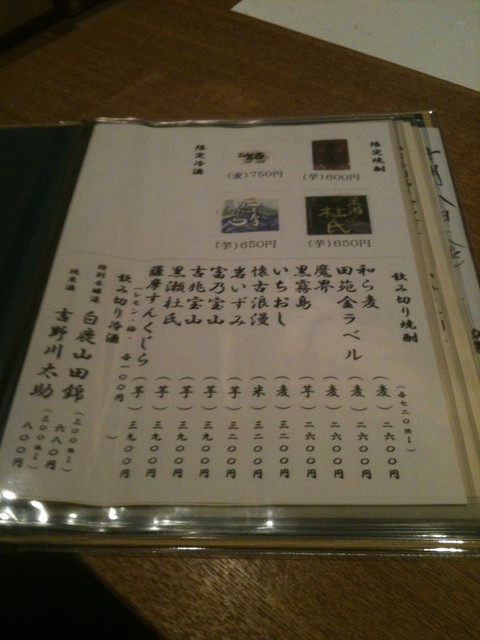 限定焼酎
(芋)600円
(麦)750円
杜氏
(芋)650円
(芋)650円
限定冷酒
飲み切り焼酎
(各七二〇ml)
和ら麦 (麦) 二六〇〇円
田苑金ラベル (麦) 二六〇〇円
魔界 (麦) 二六〇〇円
黒霧島 (芋) 二六〇〇円
いちおし (麦) 三二〇〇円
懐古浪漫 (米) 三二〇〇円
岩いずみ (芋) 三二〇〇円
富乃宝山 (芋) 三九〇〇円
吉兆宝山 (芋) 三九〇〇円
黒瀬杜氏 (芋) 三九〇〇円
薩摩すんくじら (芋) 三九〇〇円
(レモン・梅・各一〇〇円)
飲み切り冷酒
特別本醸造 白鹿山田錦 (三〇〇ml) 六八〇円
純米酒 吉野川太助 (三〇〇ml) 八〇〇円